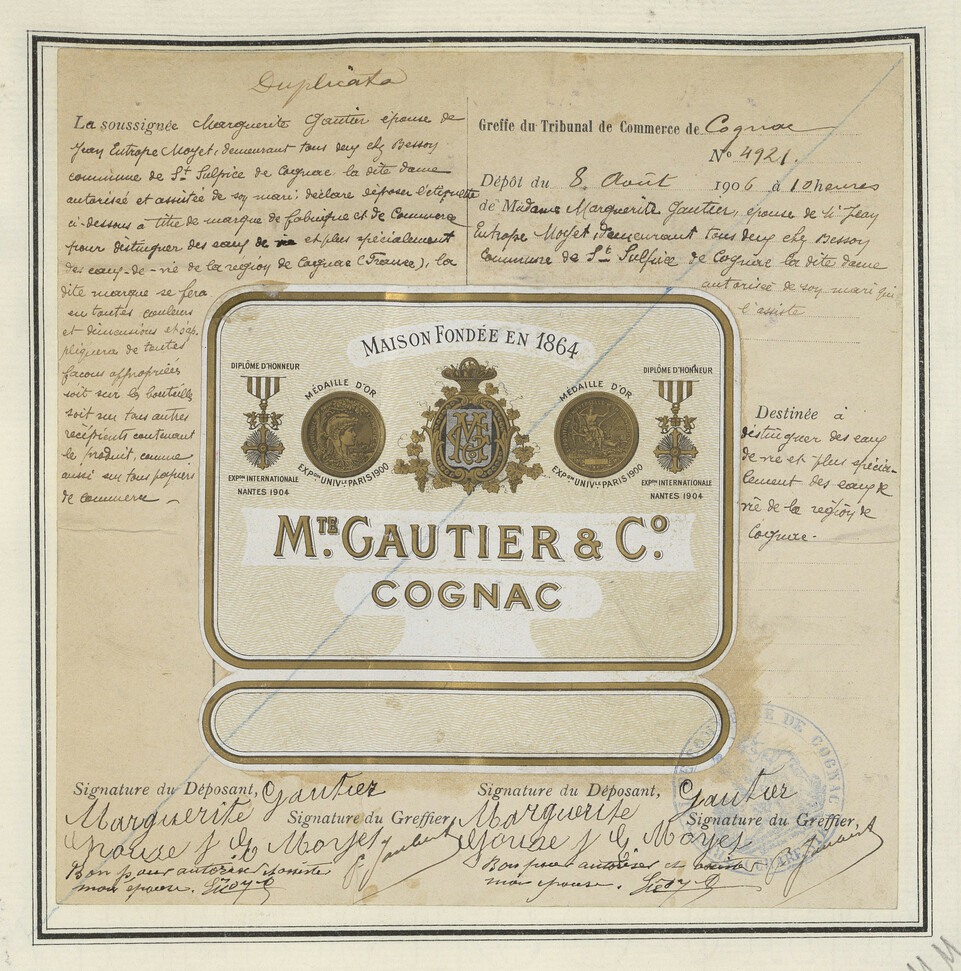 Duplicata
La soussignée Marguerite Gautier épouse de
Jean Eutrope Moyet, demeurant tous deux chez Bessoy
commune de St Sulpice de Cognac la dite dame
autorisée et assistée de son mari, déclare déposer l'étiquette
ci-dessous à titre de marque de fabrique et de Commerce
pour distinguer des eaux de vie et plus spécialement
des eaux-de-vie de la région de Cognac (France), la
dite marque se fera
en toutes couleurs
et dimensions et s'ap
pliquera de toutes
façons appropriées
soit sur les bouteilles
soit sur tous autres
récipients contenant
le produit, comme
aussi sur tous papiers
de commerce
Greffe du Tribunal de Commerce de Cognac
No 4921.
Dépôt du 8 Août 1906 à 10 heures
de Madame Marguerite Gautier, épouse de Mr Jean
Eutrope Moyet, demeurant tous deux chez Bessoy
Commune de St Sulpice de Cognac la dite dame
autorisée de son mari qui
l'assiste
Destinée à
distinguer des eaux
de vie et plus spécia-
lement des eaux de
vie de la région de
Cognac.
MAISON FONDÉE EN 1864
DIPLÔME D'HONNEUR
MÉDAILLE D'OR
MÉDAILLE D'OR
DIPLÔME D'HONNEUR
MG
EXPON INTERNATIONALE
NANTES 1904
EXPON UNIVLE PARIS 1900
EXPON UNIVLE PARIS 1900
EXPON INTERNATIONALE
NANTES 1904
MTE. GAUTIER & CO.
COGNAC
DE COGNAC
Signature du Déposant, Gautier
Marguerite
Signature du Greffier,
Epouse J E Moyet
Bon pour autorisé et assisté
mon épouse.
Signature du Déposant, Gautier
Marguerite
Signature du Greffier,
Epouse J E Moyet
Bon pour autoriser et assister
mon épouse.